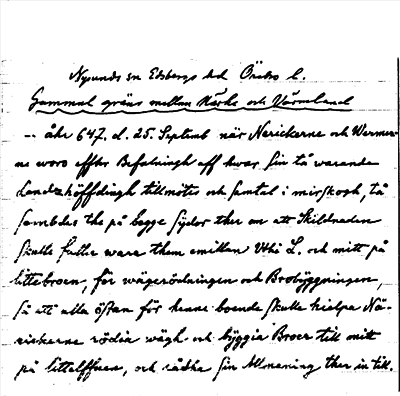 Nysunds sn Edsbergs hd Örebro l.
Gammal gräns mellan Närke och Värmland
-- åhr 647. d. 25. Septemb när Nerickerne och Wermer-
ne woro effter Befalningh aff hwar sin tå warande
Landzhöffdingh till mötes och samtal i mirskogh, tå
sambdes the på begge sijdor ther om att Skildnaden
skulle wara them emillan Uthi L. och mitt på
littebroen, för wägerödningen och Brobyggningen,
så att alle östan för henne boende skulle hielpa Nä-
rickerne rödia wägh och byggia Broer till mitt
på littelffuen, och rådha sin Allmening ther in till.